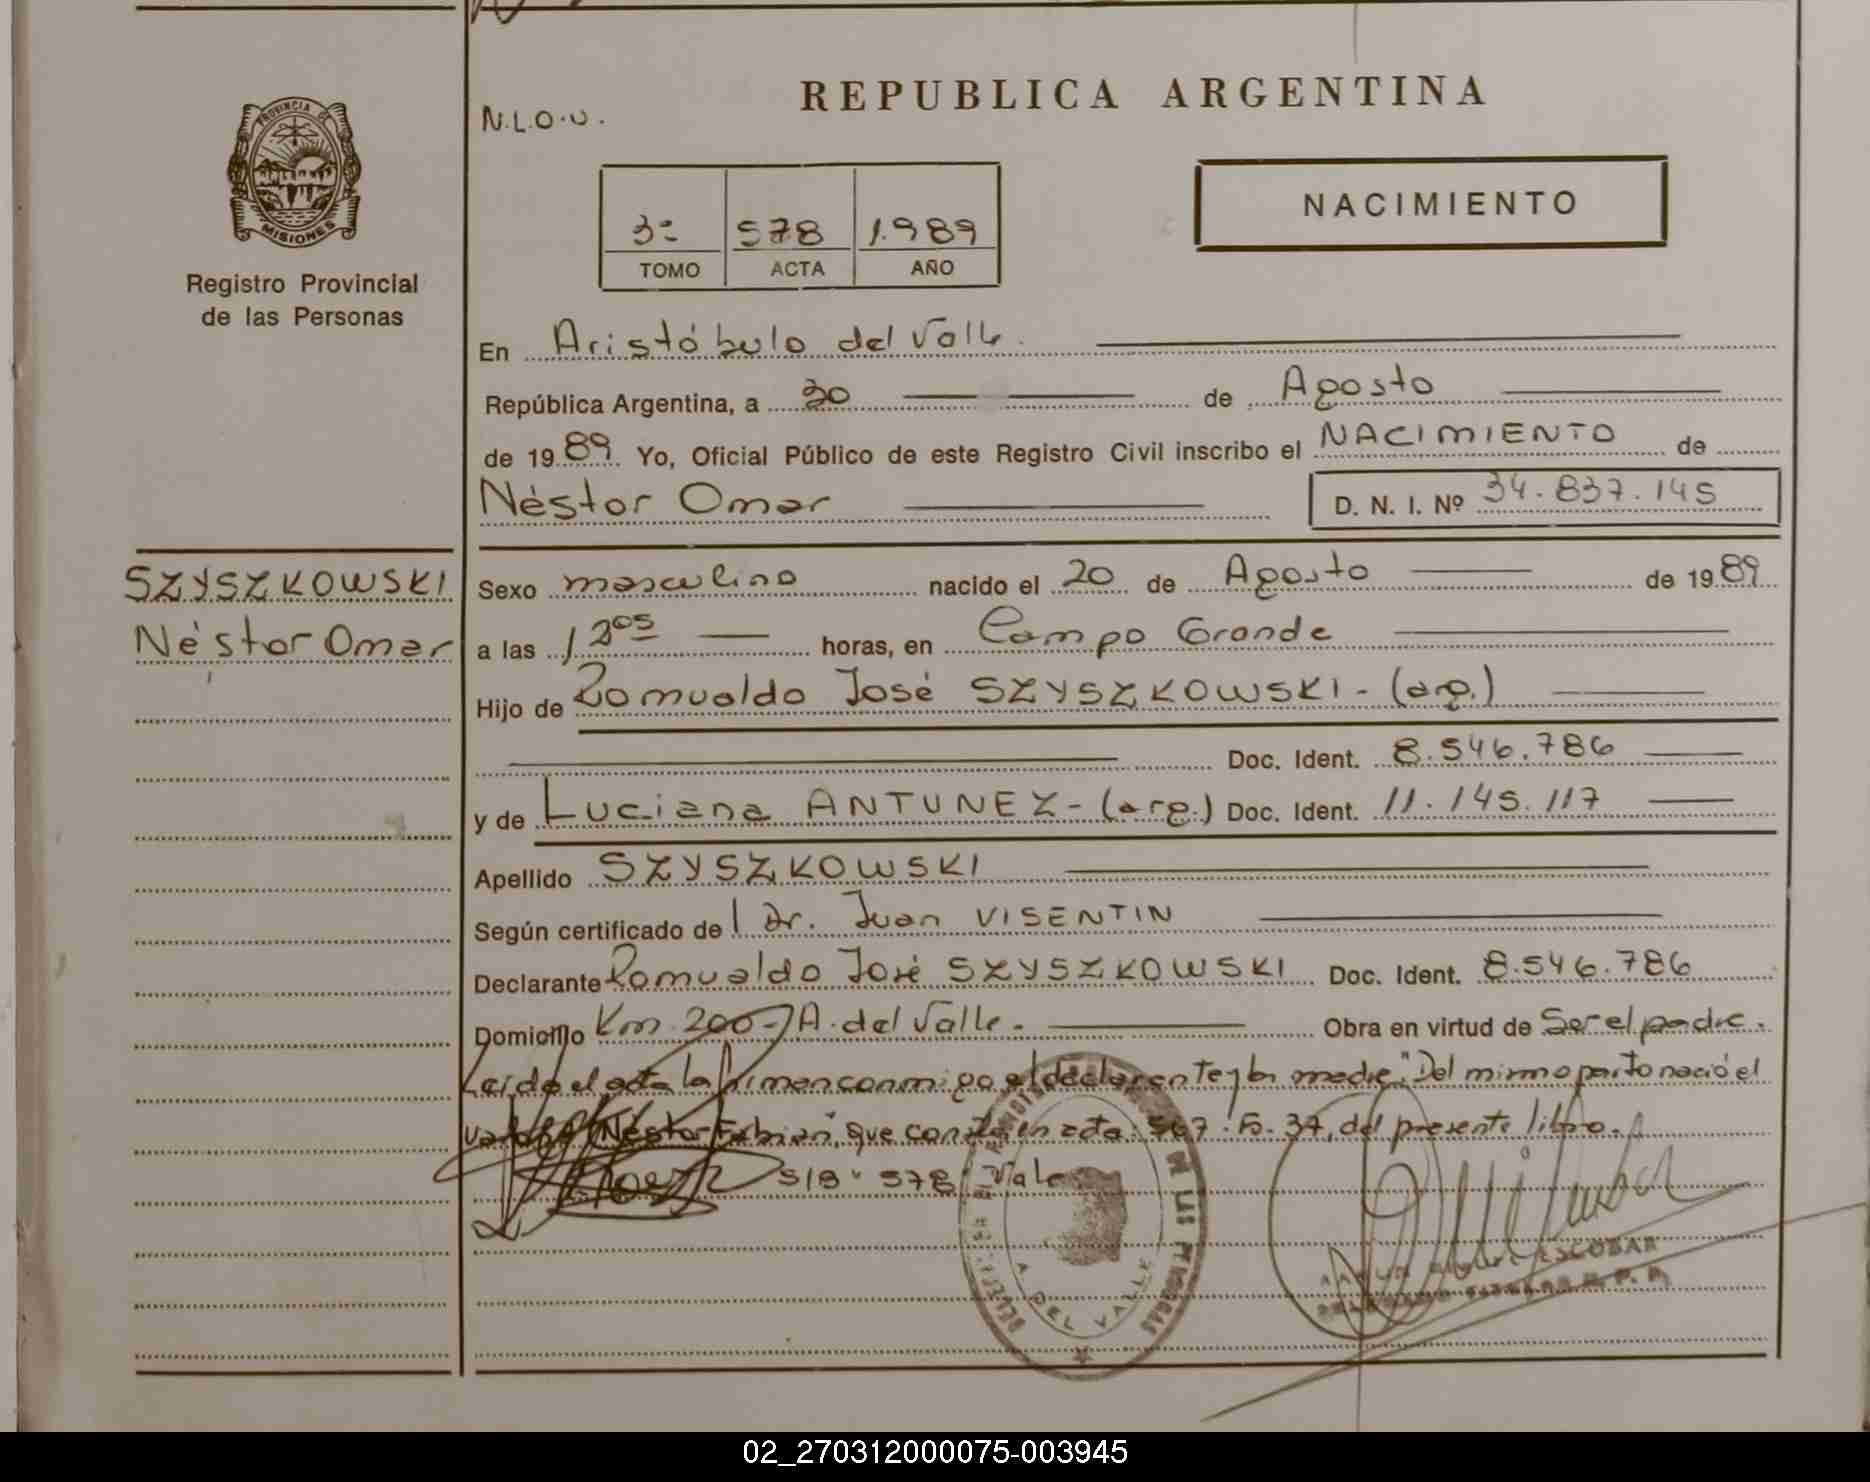 REPUBLICA ARGENTINA
N.L.O.U.
PROVINCIA DE
MISIONES
Registro Provincial
de las Personas
3º 578 1.989
TOMO ACTA AÑO
NACIMIENTO
En Aristóbulo del Valle.
República Argentina, a 30 de Agosto
de 1989 Yo, Oficial Público de este Registro Civil inscribo el NACIMIENTO de
Néstor Omar D. N. I. Nº 34.837.145
SZYSZKOWSKI
Néstor Omar
Sexo masculino nacido el 20 de Agosto de 1989
a las 12 05 horas, en Campo Grande
Hijo de Romualdo José SZYSZKOWSKI - (arg.)
Doc. Ident. 8.546.786
y de Luciana ANTUNEZ - (arg.) Doc. Ident. 11.145.117
Apellido SZYSZKOWSKI
Según certificado del Dr. Juan VISENTIN
Declarante Romualdo José SZYSZKOWSKI Doc. Ident. 8.546.786
Domicilio Km. 200 - A. del Valle. Obra en virtud de Ser el padre.
Leída el acta la firman conmigo el declarante y la madre. "Del mismo parto nació el
varón Néstor Fabian", que consta en acta: 567. Fº. 37, del presente libro.
S/B " 578 " Vale
DE LAS PERSONAS
A DEL VALLE
ESCOBAR
02_270312000075-003945